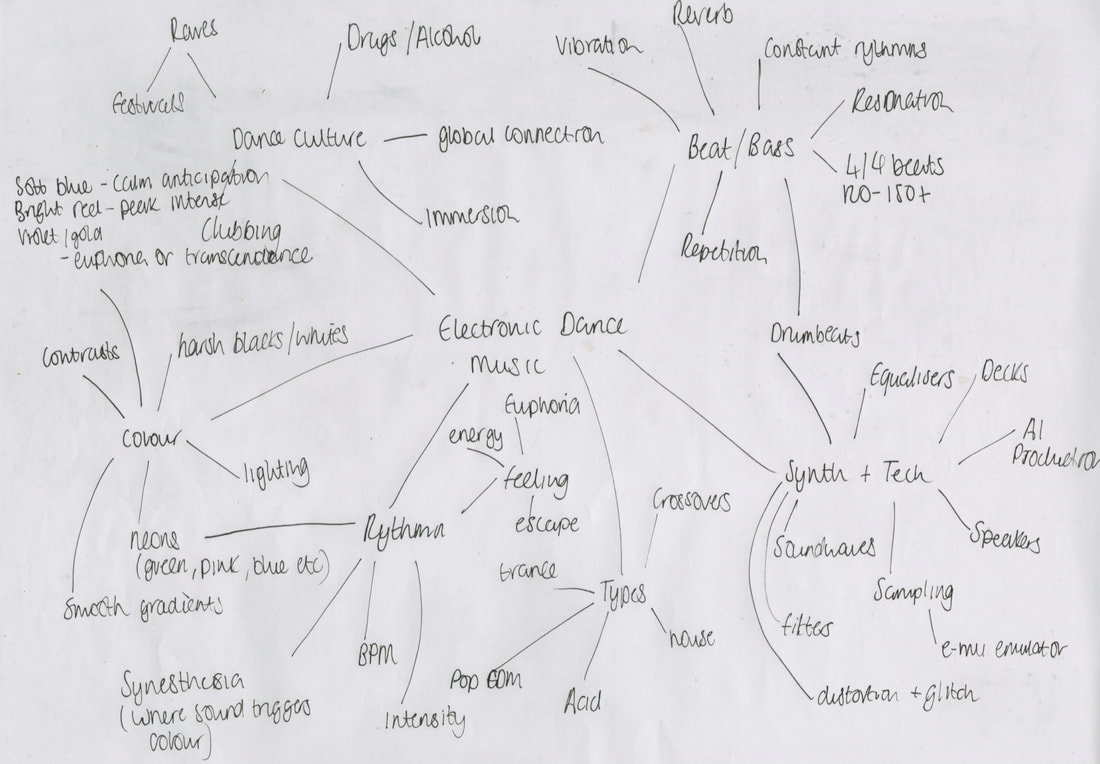 Raves
festivals
Drugs/Alcohol
Dance culture
global connection
Immersion
Clubbing
Soft blue - calm anticipation
Bright red - peak intense
violet/gold
- euphoria or transcendance
Vibration
Reverb
Constant rythmns
Resonation
Beat/Bass
4/4 beats
120-150+
Repetition
Drumbeats
Electronic Dance
Music
contrasts
harsh blacks/whites
colour
lighting
neons
(green, pink, blue etc)
smooth gradients
Euphoria
energy
feeling
escape
Rythmn
BPM
Intensity
Synesthesia
(where sound triggers
colour)
Crossovers
trance
Types
house
Pop EDM
Acid
Equalisers
Decks
AI
Production
Synth + Tech
Speakers
Soundwaves
Sampling
filters
e-mu emulator
distortion + glitch